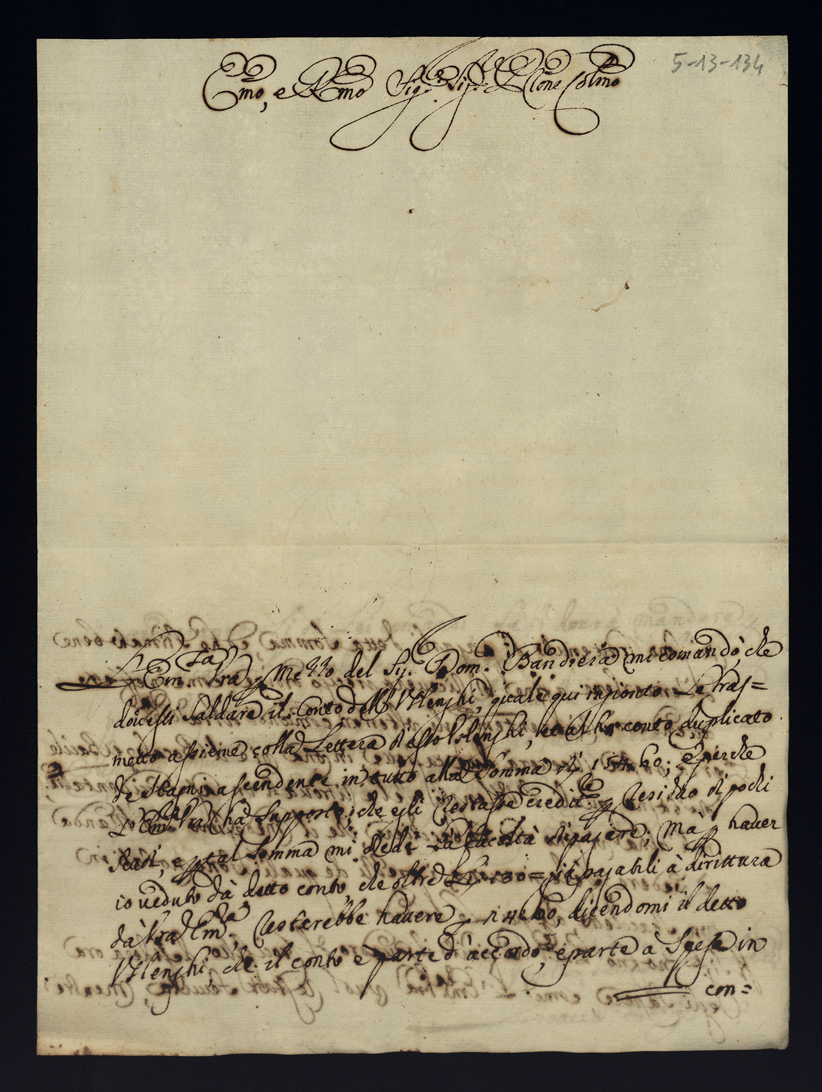 5-13-134
Emo, e Rmo Sig.r Sig.r Pne Colmo
L'Em.za V'ra p mezzo del Sig.r Dom.co Bandiera mi comandò, che
dovessi saldare il conto dell Polenghi, quale qui ingionto Le tras=
metto assieme colla Lettera d'esso Polenghi, et altro conto duplicato
de stagni ascendente in tutto alla somma di 154.60; e perche
L'Em.za V'ra ha supposto, che egli restasse credit.e p residuo di pochi
scudi, e p tal somma mi diede la facoltà di pagare; Ma p haver
io veduto dà detto conto che oltre 130= già pagabili à dirittura
dà V'ra Em.za resterebbe havere p 24.60, dicendomi il detto
Polenghi, che il conto e parte d'accordo, e parte à spese in
con=